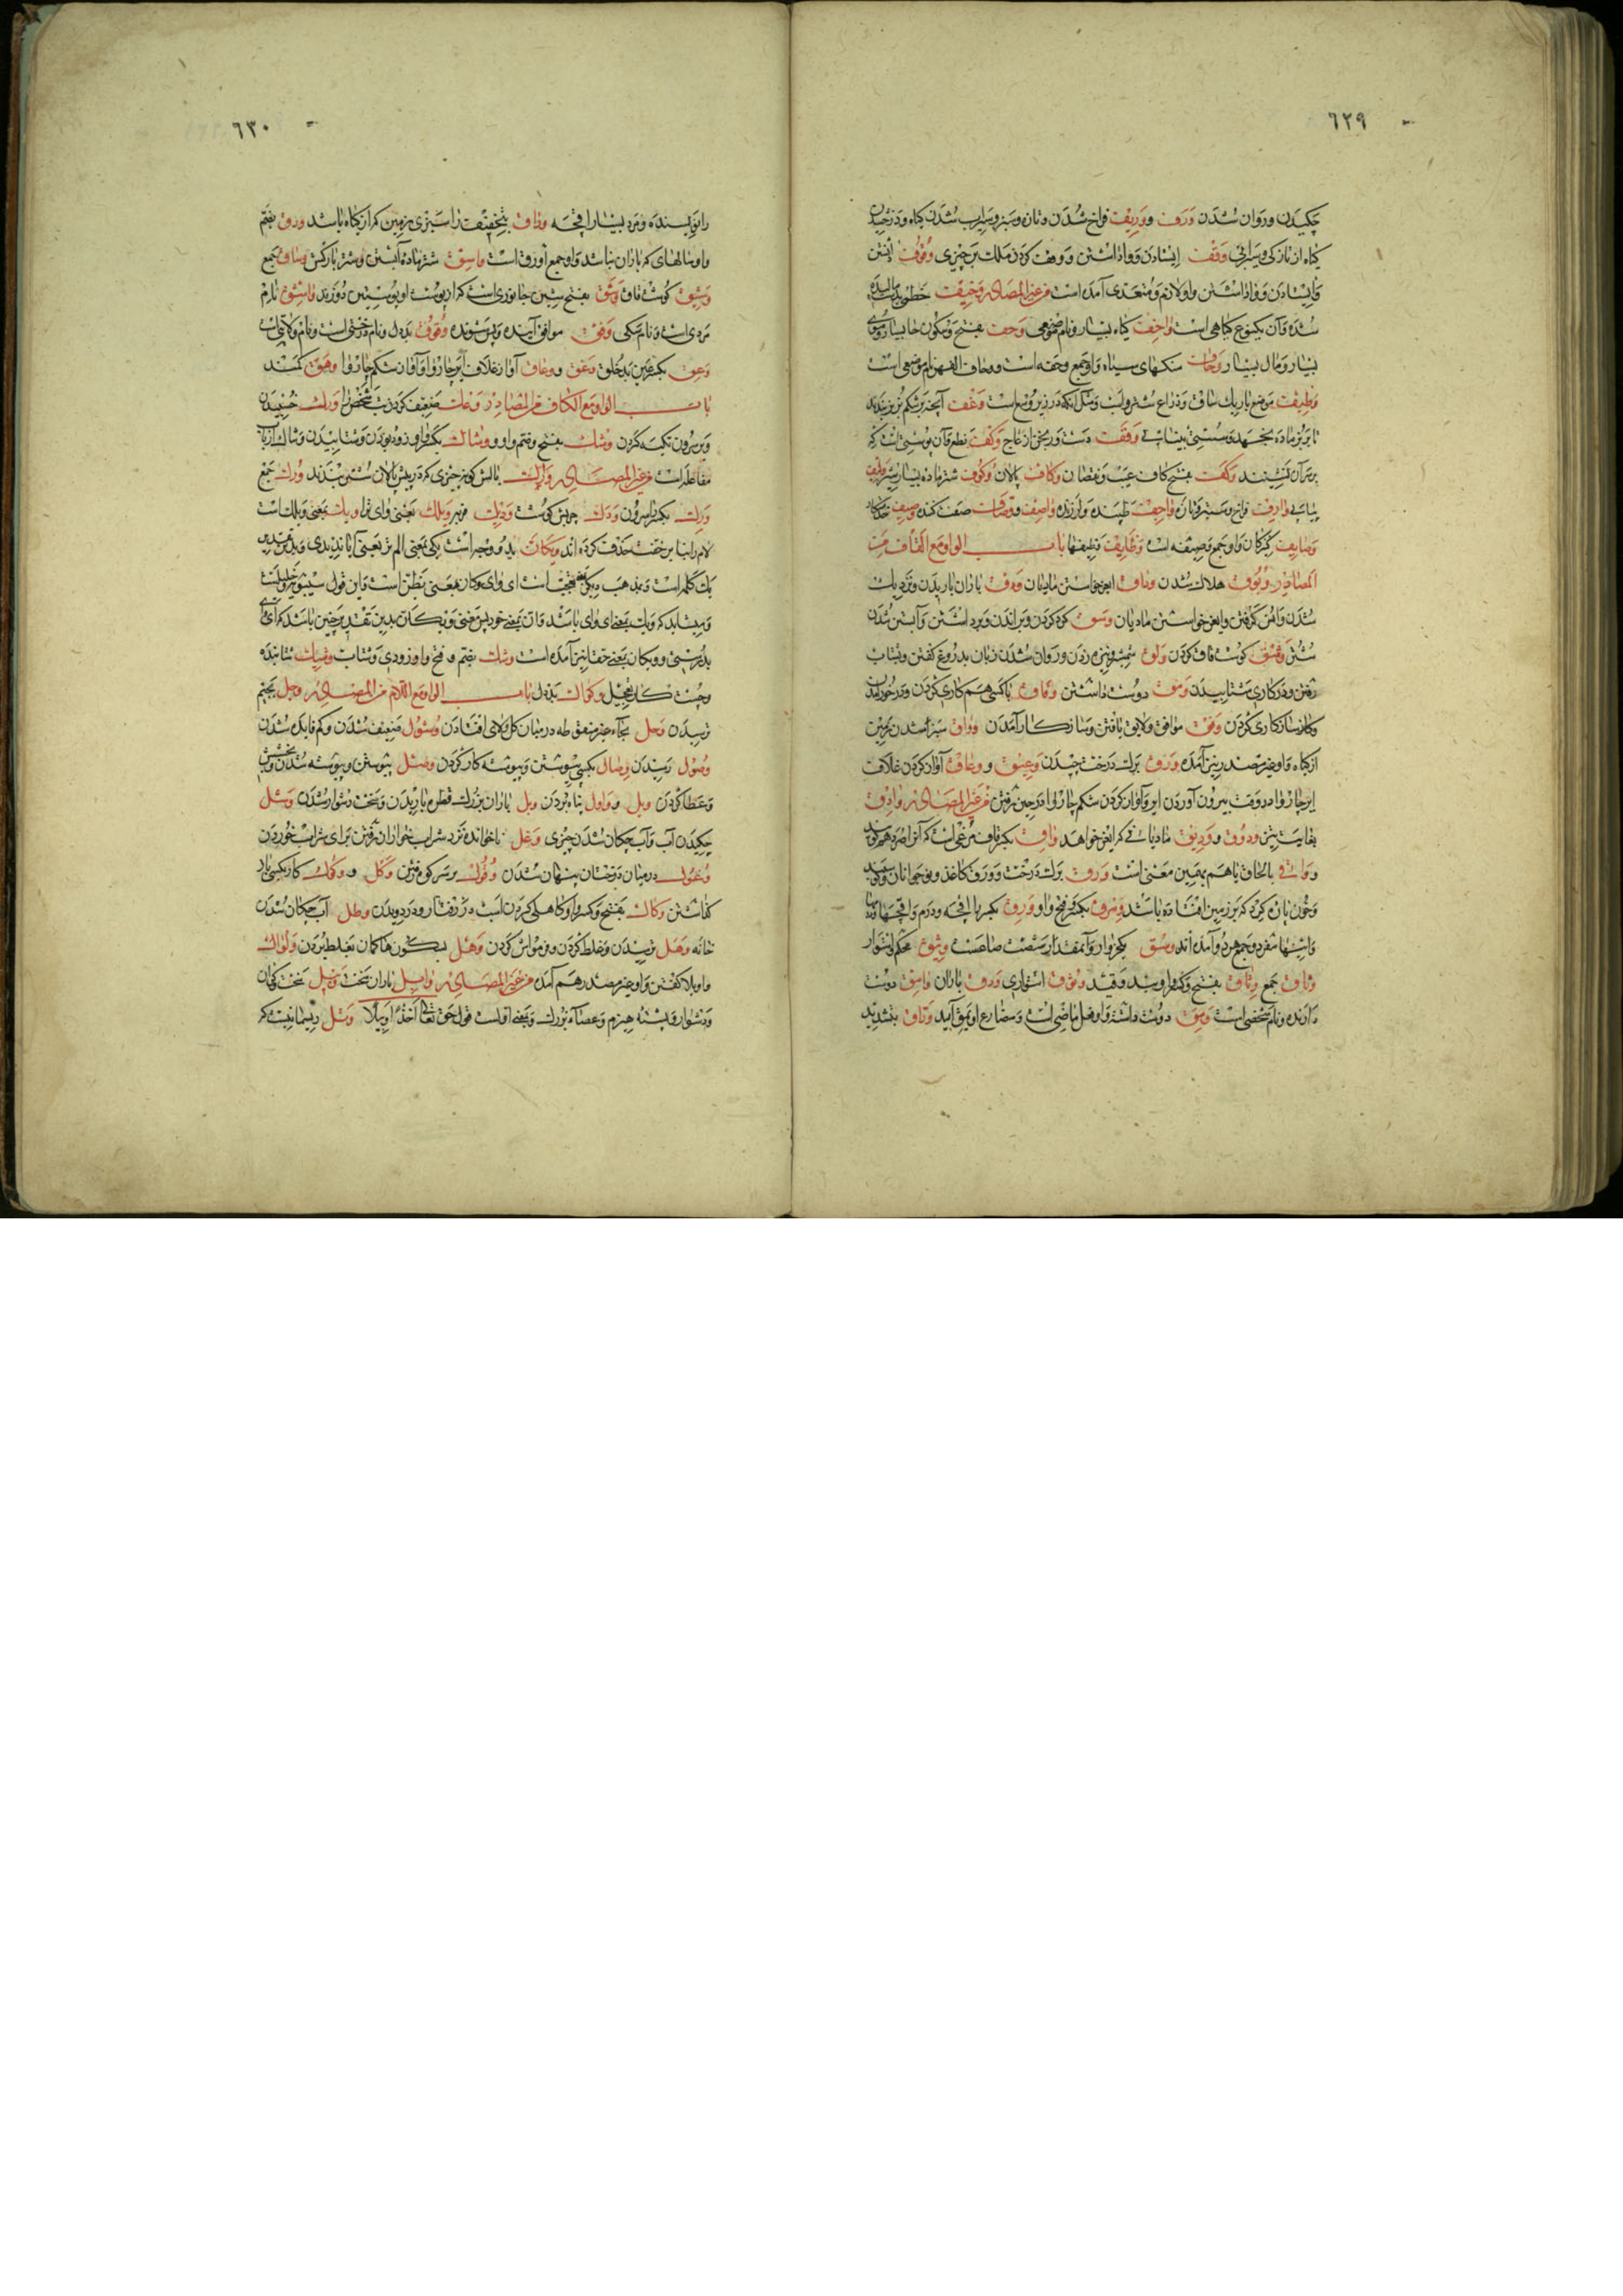 ٦٢٩
چکیدن وروان شدن ورف ووریف فراخ شدن وتازه وسبز وسیراب شدن کیاه ودرخشیدن
کیاه از تازکی وسیرابی وقف ایستادن وواداشتن ووقف کردن ملک بر چیزی وقوف
وایستادن وواداشتن واو لازم ومتعدی آمده است من غیر المصادر وخیف خطمی
شده وآن یکنوع کیاهی است واحف کیاه بسیار ونام موضعی وحف بفتح وسکون حا بسیار
بسیار ومال بسیار وحاف سنکهای سیاه واو جمع وحفه است ووحاف القهر نام موضعی است
وظیف موضع باریک ساق وذراع شتر واسب ومثل آنکه وقف آنچه بر شکم بز بندند
تا بر بز ماده نجهد وسستی بینائی وقف دست ورنجن از عاج وکف نطع وآن پوستی است که
بر سر آن نشینند وکف بفتح کاف عیب ونقصان وکاف پالان وکوف شتر ماده بسیار شیر
وارف فراخ وسبز وتازه واجف طپنده ولرزنده واصف ووصاف صفت کننده وصیف خدمتکار
وصایف کنیزکان واو جمع وصیفه است وظایف وظیفها باب الواو مع القاف من
المصادر وبوق هلاک شدن وداق ایغر خواستن مادیان ودق باران باریدن ونزدیک
شدن وانس کرفتن وایغر خواستن مادیان وسق کرد کردن وبر راندن وبرداشتن وآبستن شدن
شتر وشق کوشت قاق کردن ولق شمشیر ونیزه زدن وروان شدن زبان بدروغ کفتن وبشتاب
رفتن ودر کاری شتابیدن ومق دوست داشتن وفاق باکسی هم کاری کردن
وکار سازکاری کردن وفق موافق ولایق یافتن وسازکار آمدن وراق سبز شدن زمین
از کیاه واو غیر مصدر نیز آمده ورق برک درخت چیدن وعیق ووعاق آواز کردن غلاف
ایر چاروا در وقت بیرون آوردن ایر وآواز کردن شکم چاروا در حین رفتن من غیر المصادر وادق
بغایت تیز ودوق وودیق مادیانی که ایغر خواهد واق بکسر قاف مرغی است که آنرا صرد هم کویند
وواقی بالحاق یا هم بهمین معنی است ورق برک درخت وورق کاغذ ونوجوانان
وخون پاره کرد که بر زمین افتاده باشد وورق بکسر وفتح واو وورق بکسر را اقچه ودرم واقچها
واینها مفرد وجمع هر دو آمده اند وسق یکخروار وآنمقدار شصت صاعست وثیق محکم واستوار
وثاق جمع وثاق بفتح وکسر واو بند وقید وثوق استواری ودق باران وامق دوست
دارنده ونام شخصی است ومق دوست داشت واو فعل ماضی است ومضارع او یمق آید وراق بتشدید
٦٣٠
را نویسنده ومرد بسیار اقچه وراق بتخفیف را سبزی زمین که از کیاه باشد ورق بضم
واو سالهای که باران نباشد واو جمع اورق است واسق شتر ماده آبستن وشتر بارکش وساق جمع
وشیق کوشت قاق وشق بفتح شین جانوری است که از پوست او پوستین دوزند واشق نام
مردی است ونام سکی وفق موافق آینده وپس شونده وقوق بددل ونام درختی است ونام ولایتی است
وعق بکسر عین بدخلق وعق ووعاق آواز غلاف ایر چاروا وآواز شکم چاروا وهق کمند
باب الواو مع الکاف من المصادر وعک ضعیف کردن تب شخص را ورک خسبیدن
وبر سرون تکیه کردن وشک بفتح وضم واو ووشاک بکسر واو زود بودن وشتابیدن وشاک از باب
مفاعله است من غیر المصادر وارک بالش کونه چیزی که در پیش پالان شتر می بندند ورک جمع
ورک بکسر را سرون ودک چربش کوشت ودیک فربه ویلک بمعنی وای ترا ویک بمعنی ویلک است
لام را بنابر خفت حذف کرده اند ویکان بدو وجه است یکی بمعنی الم تر یعنی آیا ندیدی وبدین تقدیر
یک کلمه است وبمذهب دیکر ای وای وکان بمعنی یظن است واین قول سیبویه وخلیل است
ومیشاید که ویک بمعنای وای باشد وان بمعنی خود پس معنی ویکان بدین تقدیر چنین باشد که ای
بدرستی وویکان بمعنی حقا نیز آمده است وشک بضم وفتح واو زودی وشتاب وشیک شتابنده
وچست کار بتعجیل وکواک بددل باب الواو مع اللام من المصادر وجل بجیم
ترسیدن وحل بحاء غیر منقوطه در میان کل ولای افتادن وشول ضعیف شدن وکم فایده شدن
وصول رسیدن وصال بکسی پیوستن وپیوسته کار کردن وصل پیوستن وپیوسته شدن وبخشش
وعطا کردن ویل ووأول پناه بردن وبل باران بزرک قطره باریدن وسخت ودشوار شدن وشل
چکیدن آب وآب چکان شدن چیزی وغل ناخوانده نزد شراب خواران رفتن برای شراب خوردن
وغول در میان درختان پنهان شدن وقول بر سر کوه رفتن وکل ووکول کار بکسی باز
کذاشتن وکال بفتح وکسر واو کاهلی کردن اسب در رفتار ودر دویدن وطل آب چکان شدن
خانه وهل ترسیدن وغلط کردن وفراموش کردن وهل بسکون ها کمان بغلط بردن ولوال
واویلا کفتن واو غیر مصدر هم آمده من غیر المصادر وابل باران سخت وبیل سخت وکران
ودشوار وپشته هیزم وعصای بزرک وبمعنی اولست قول حق تعالی اخذا وبیلا وثل ریسمانیست که